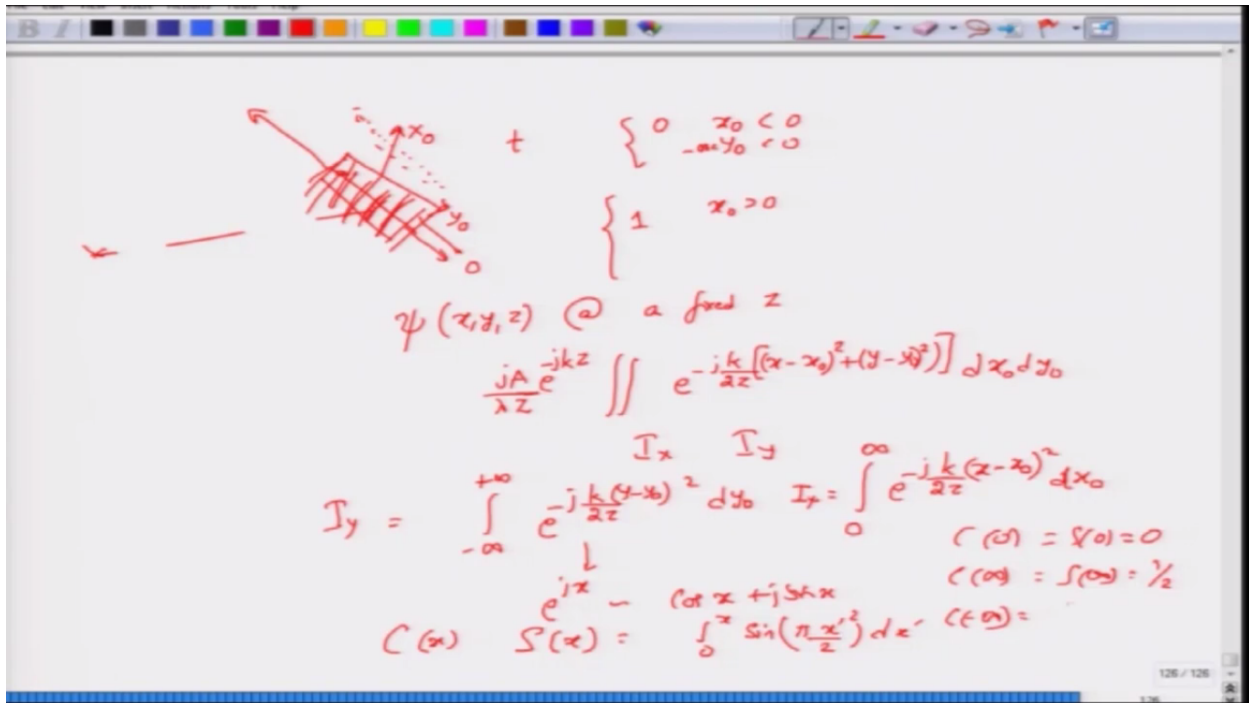 B I
x₀ t { 0 x₀ < 0
y₀ < 0
y₀ { 1 x₀ > 0
0
ψ (x, y, z) @ a fixed z
jA/λz e^{-jkz} ∬ e^{-j k/2z [(x-x₀)²+(y-y₀)²)]} dx₀ dy₀
I_x I_y
I_y = ∫_{-∞}^{+∞} e^{-j k/2z (y-y₀)²} dy₀ I_x = ∫_0^∞ e^{-j k/2z (x-x₀)²} dx₀
C(0) = S(0) = 0
C(∞) = S(∞) = 1/2
e^{jx} – cos x + j sin x
C(x) S(x) = ∫_0^x sin(π x'²/2) dx' C(-∞) =
126 / 126
126